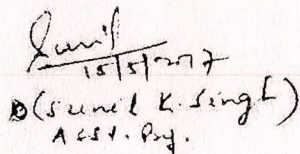 Sunil
15/5/2017
(Sunil K. Singh)
Asst. Proj.